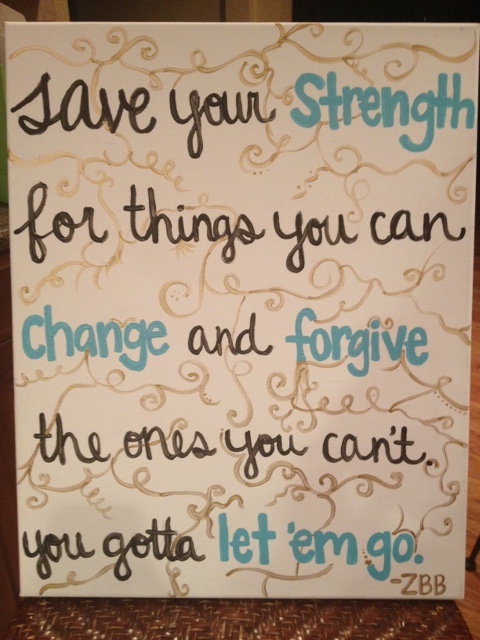 save your Strength
for things you can
change and forgive
the ones you can't.
you gotta let 'em go.
-ZBB